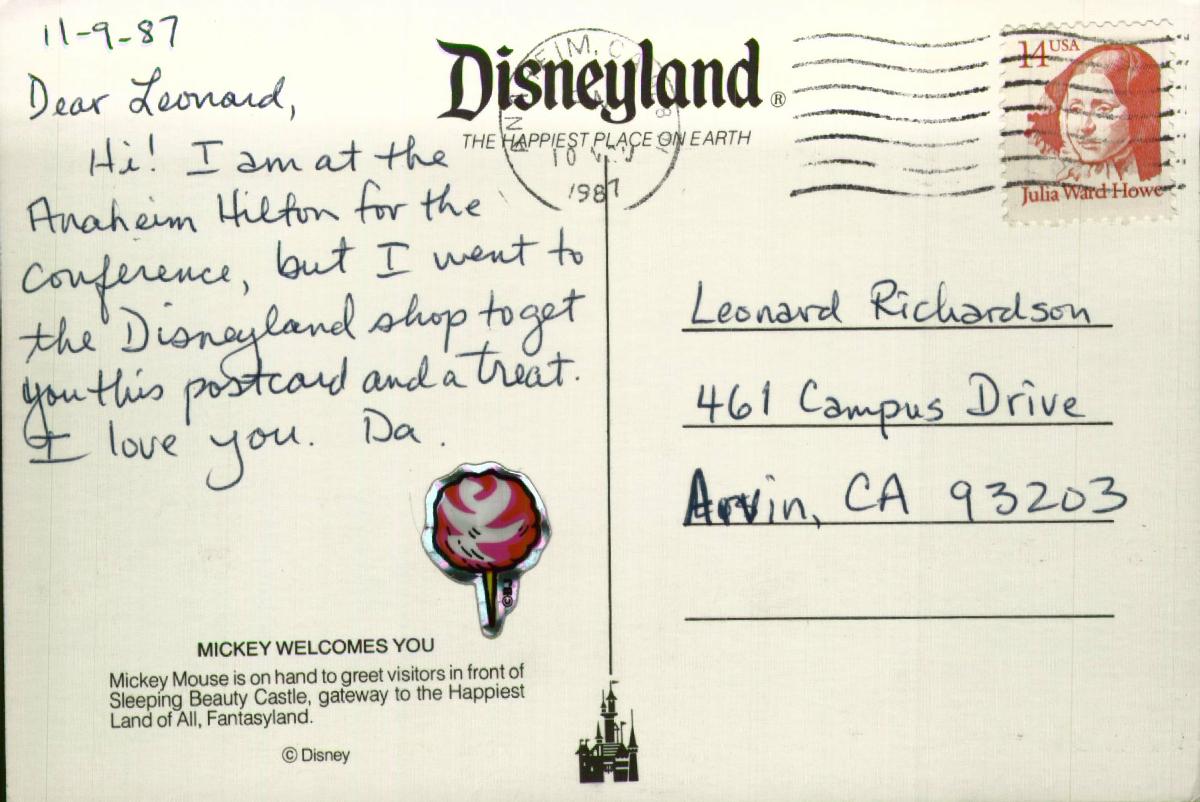 11-9-87
Dear Leonard,
Hi! I am at the
Anaheim Hilton for the
conference, but I went to
the Disneyland shop to get
you this postcard and a treat.
I love you. Da.
MICKEY WELCOMES YOU
Mickey Mouse is on hand to greet visitors in front of
Sleeping Beauty Castle, gateway to the Happiest
Land of All, Fantasyland.
© Disney
Disneyland®
THE HAPPIEST PLACE ON EARTH
10
1987
14 USA
Julia Ward Howe
Leonard Richardson
461 Campus Drive
Arvin, CA 93203